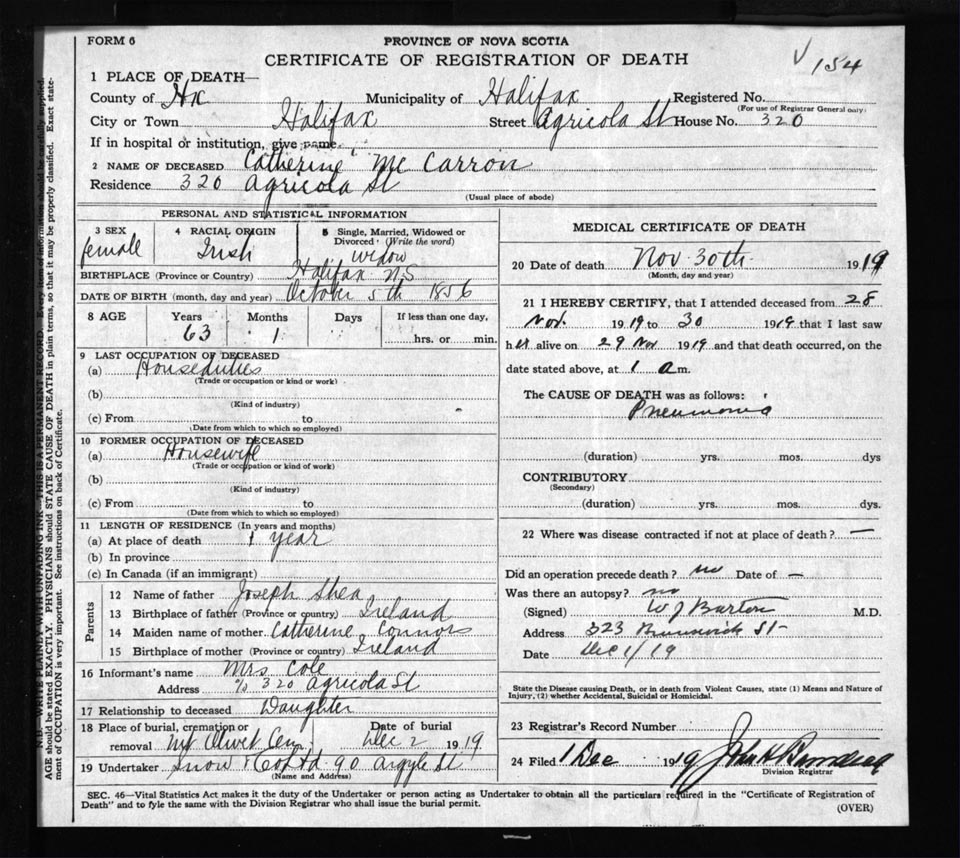 FORM 6
PROVINCE OF NOVA SCOTIA
CERTIFICATE OF REGISTRATION OF DEATH
√ 154
1 PLACE OF DEATH—
County of Hx Municipality of Halifax Registered No.
(For use of Registrar General only)
City or Town Halifax Street Agricola St House No. 320
If in hospital or institution, give name
2 NAME OF DECEASED Catherine Mc Carron
Residence 320 Agricola St
(Usual place of abode)
PERSONAL AND STATISTICAL INFORMATION
3 SEX female
4 RACIAL ORIGIN Irish
5 Single, Married, Widowed or Divorced (Write the word) widow
BIRTHPLACE (Province or Country) Halifax N.S
DATE OF BIRTH (month, day and year) October 5th 1856
8 AGE Years 63 Months 1 Days If less than one day, hrs. or min.
9 LAST OCCUPATION OF DECEASED
(a) Houseduties
(Trade or occupation or kind or work)
(b)
(Kind of industry)
(c) From to
(Date from which to which so employed)
10 FORMER OCCUPATION OF DECEASED
(a) Housewife
(Trade or occupation or kind of work)
(b)
(Kind of industry)
(c) From to
(Date from which to which so employed)
11 LENGTH OF RESIDENCE (In years and months)
(a) At place of death 1 year
(b) In province
(c) In Canada (if an immigrant)
Parents
12 Name of father Joseph Shea
13 Birthplace of father (Province or country) Ireland
14 Maiden name of mother Catherine Connors
15 Birthplace of mother (Province or country) Ireland
16 Informant's name Mrs Cole
Address % 320 Agricola St
17 Relationship to deceased Daughter
18 Place of burial, cremation or removal Mt Olivet Cem Date of burial Dec 2 1919
19 Undertaker Snow & Co Ltd 90 Argyle St
(Name and Address)
MEDICAL CERTIFICATE OF DEATH
20 Date of death Nov 30th 1919
(Month, day and year)
21 I HEREBY CERTIFY, that I attended deceased from 28
Nov. 1919 to 30 1919 that I last saw
her alive on 29 Nov 1919 and that death occurred, on the
date stated above, at 1 a m.
The CAUSE OF DEATH was as follows:
Pneumonia
(duration) yrs. mos. dys
CONTRIBUTORY
(Secondary)
(duration) yrs. mos. dys.
22 Where was disease contracted if not at place of death? —
Did an operation precede death? no Date of —
Was there an autopsy? no
(Signed) W J Barton M.D.
Address 323 Brunswick St
Date Dec 1/19
State the Disease causing Death, or in death from Violent Causes, state (1) Means and Nature of
Injury, (2) whether Accidental, Suicidal or Homicidal.
23 Registrar's Record Number
24 Filed 1 Dec 1919 John H
Division Registrar
SEC. 46—Vital Statistics Act makes it the duty of the Undertaker or person acting as Undertaker to obtain all the particulars required in the "Certificate of Registration of
Death" and to fyle the same with the Division Registrar who shall issue the burial permit.
(OVER)
N.B.—WRITE PLAINLY WITH UNFADING INK—THIS IS A PERMANENT RECORD. Every item of information should be carefully supplied.
AGE should be stated EXACTLY. PHYSICIANS should STATE CAUSE OF DEATH in plain terms, so that it may be properly classified. Exact state-
ment of OCCUPATION is very important. See instructions on back of Certificate.